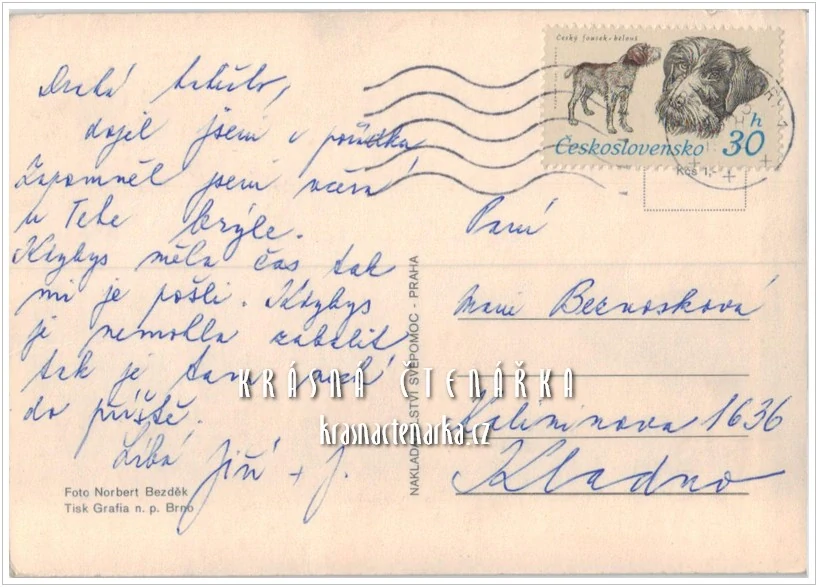 Český fousek - belouš
Československo 30 h
Kčs 1,-
Drahá
dojel jsem v pořádku
Zapomněl jsem včera
u Tebe brýle.
Kdybys měla čas tak
mi je pošli. Kdybys
je nemohla zabalit
tak je tam nech
do příště.
Líbá Jiří + J.
Foto Norbert Bezděk
Tisk Grafia n. p. Brno
NAKLADATELSTVÍ SVÉPOMOC - PRAHA
Paní
Marie Beznosková
Kalininova 1636
Kladno
KRÁSNÁ ČTENÁŘKA
krasnactenarka.cz